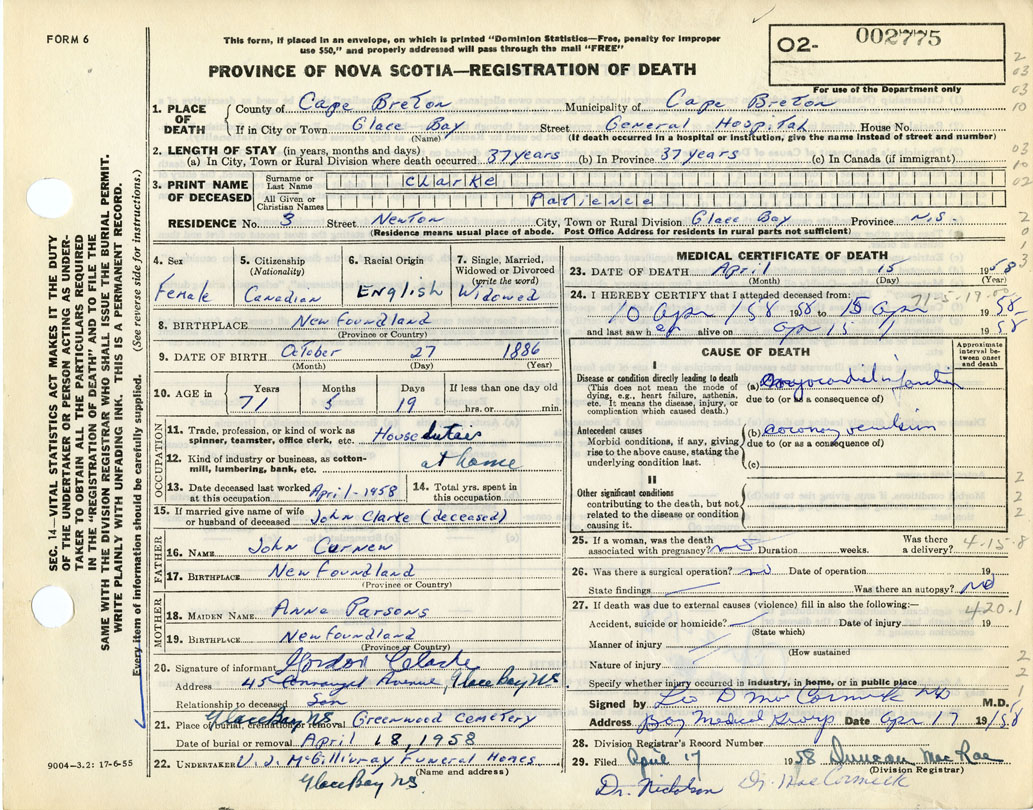 FORM 6
This form, if placed in an envelope, on which is printed "Dominion Statistics—Free, penalty for improper
use $50," and properly addressed will pass through the mail "FREE"
02- 002775
For use of the Department only
PROVINCE OF NOVA SCOTIA—REGISTRATION OF DEATH
SEC. 14—VITAL STATISTICS ACT MAKES IT THE DUTY
OF THE UNDERTAKER OR PERSON ACTING AS UNDER-
TAKER TO OBTAIN ALL THE PARTICULARS REQUIRED
IN THE "REGISTRATION OF DEATH" AND TO FILE THE
SAME WITH THE DIVISION REGISTRAR WHO SHALL ISSUE THE BURIAL PERMIT.
WRITE PLAINLY WITH UNFADING INK. THIS IS A PERMANENT RECORD.
Every item of information should be carefully supplied. (See reverse side for instructions.)
1. PLACE OF DEATH County of Cape Breton Municipality of Cape Breton
If in City or Town Glace Bay Street General Hospital House No.
(Name) (If death occurred in a hospital or institution, give the name instead of street and number)
2. LENGTH OF STAY (in years, months and days)
(a) In City, Town or Rural Division where death occurred 37 years (b) In Province 37 years (c) In Canada (if immigrant)
3. PRINT NAME OF DECEASED
Surname or Last Name Clarke
All Given or Christian Names Patience
RESIDENCE No. 3 Street Newton City, Town or Rural Division Glace Bay Province N.S.
(Residence means usual place of abode. Post Office Address for residents in rural parts not sufficient)
4. Sex Female
5. Citizenship (Nationality) Canadian
6. Racial Origin English
7. Single, Married, Widowed or Divorced (write the word) Widowed
8. BIRTHPLACE Newfoundland
(Province or Country)
9. DATE OF BIRTH October 27 1886
(Month) (Day) (Year)
10. AGE in Years 71 Months 5 Days 19 If less than one day old hrs. or min.
OCCUPATION
11. Trade, profession, or kind of work as spinner, teamster, office clerk, etc. House duties
12. Kind of industry or business, as cotton-mill, lumbering, bank, etc. at home
13. Date deceased last worked at this occupation April-1958
14. Total yrs. spent in this occupation
15. If married give name of wife or husband of deceased John Clarke (deceased)
FATHER
16. NAME John Curnew
17. BIRTHPLACE Newfoundland
(Province or Country)
MOTHER
18. MAIDEN NAME Anne Parsons
19. BIRTHPLACE Newfoundland
(Province or Country)
20. Signature of informant Gordon Clarke
Address 45 Avenue, Glace Bay NS
Relationship to deceased Son
21. Place of burial, cremation or removal Glace Bay NS Greenwood Cemetery
Date of burial or removal April 18, 1958
22. UNDERTAKER V. J. McGillivray Funeral Homes
(Name and address)
Glace Bay NS.
9004—3.2: 17-6-55
MEDICAL CERTIFICATE OF DEATH
23. DATE OF DEATH April 15 1958
(Month) (Day) (Year)
24. I HEREBY CERTIFY that I attended deceased from: 71-5-19
10 Apr /58 1958 to 15 Apr 1958
and last saw her alive on Apr 15 1958
CAUSE OF DEATH
Approximate interval between onset and death
I
Disease or condition directly leading to death
(This does not mean the mode of dying, e.g., heart failure, asthenia, etc. It means the disease, injury, or complication which caused death.)
(a) myocardial infarction
due to (or as a consequence of)
Antecedent causes
Morbid conditions, if any, giving rise to the above cause, stating the underlying condition last.
(b) coronary
due to (or as a consequence of)
(c)
II
Other significant conditions
contributing to the death, but not related to the disease or condition causing it.
25. If a woman, was the death associated with pregnancy? no Duration weeks. Was there a delivery?
4-15-8
26. Was there a surgical operation? no Date of operation 19
State findings Was there an autopsy? no
27. If death was due to external causes (violence) fill in also the following:—
420.1
Accident, suicide or homicide? Date of injury 19
(State which)
Manner of injury
(How sustained
Nature of injury
Specify whether injury occurred in industry, in home, or in public place
Signed by Leo D MacCormick M.D.
Address Bay Medical Group Date Apr 17 19/58
28. Division Registrar's Record Number
29. Filed April 17 1958 Duncan MacRae
(Division Registrar)
Dr. Nicholson Dr. MacCormick